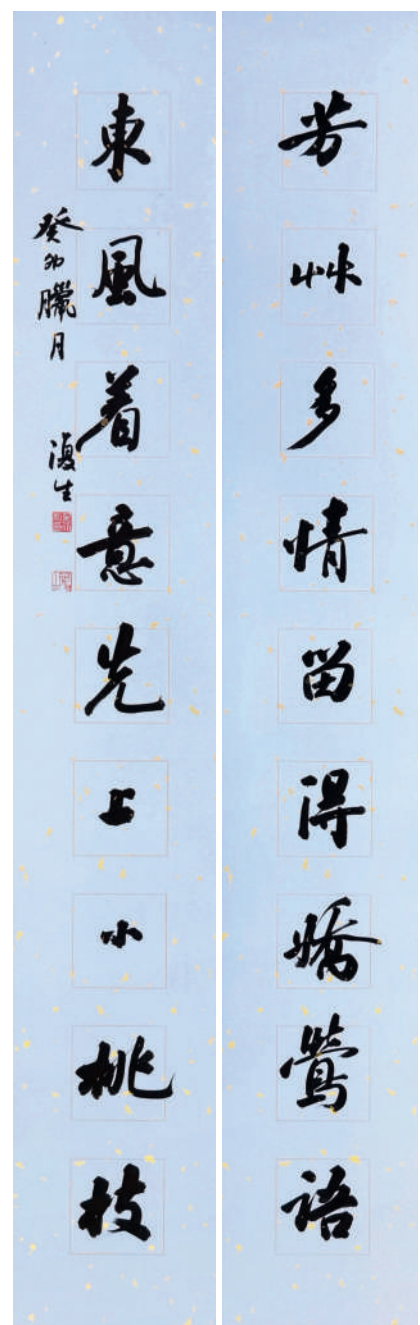 芳艸多情留得嬌鶯語
東風着意先上小桃枝
癸卯臘月 復生